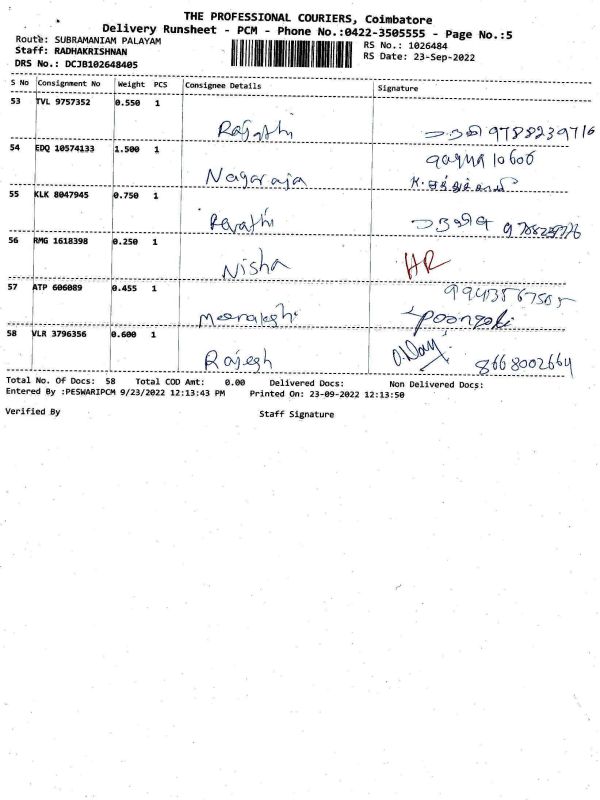 THE PROFESSIONAL COURIERS, Coimbatore
Delivery Runsheet - PCM - Phone No.:0422-3505555 - Page No.:5
Route: SUBRAMANIAM PALAYAM
RS No.: 1026484
Staff: RADHAKRISHNAN
RS Date: 23-Sep-2022
DRS No.: DCJB102648405
S No Consignment No Weight PCS Consignee Details Signature
53 TVL 9757352 0.550 1
Rajathi 9788239716
54 EDQ 10574133 1.500 1
Nagaraja
55 KLK 8047945 0.750 1
Revathi
56 RMG 1618398 0.250 1
Nisha HR
57 ATP 606089 0.455 1
58 VLR 3796356 0.600 1
Rajesh 8668002664
Total No. Of Docs: 58 Total COD Amt: 0.00 Delivered Docs: Non Delivered Docs:
Entered By :PESWARIPCM 9/23/2022 12:13:43 PM Printed On: 23-09-2022 12:13:50
Verified By Staff Signature